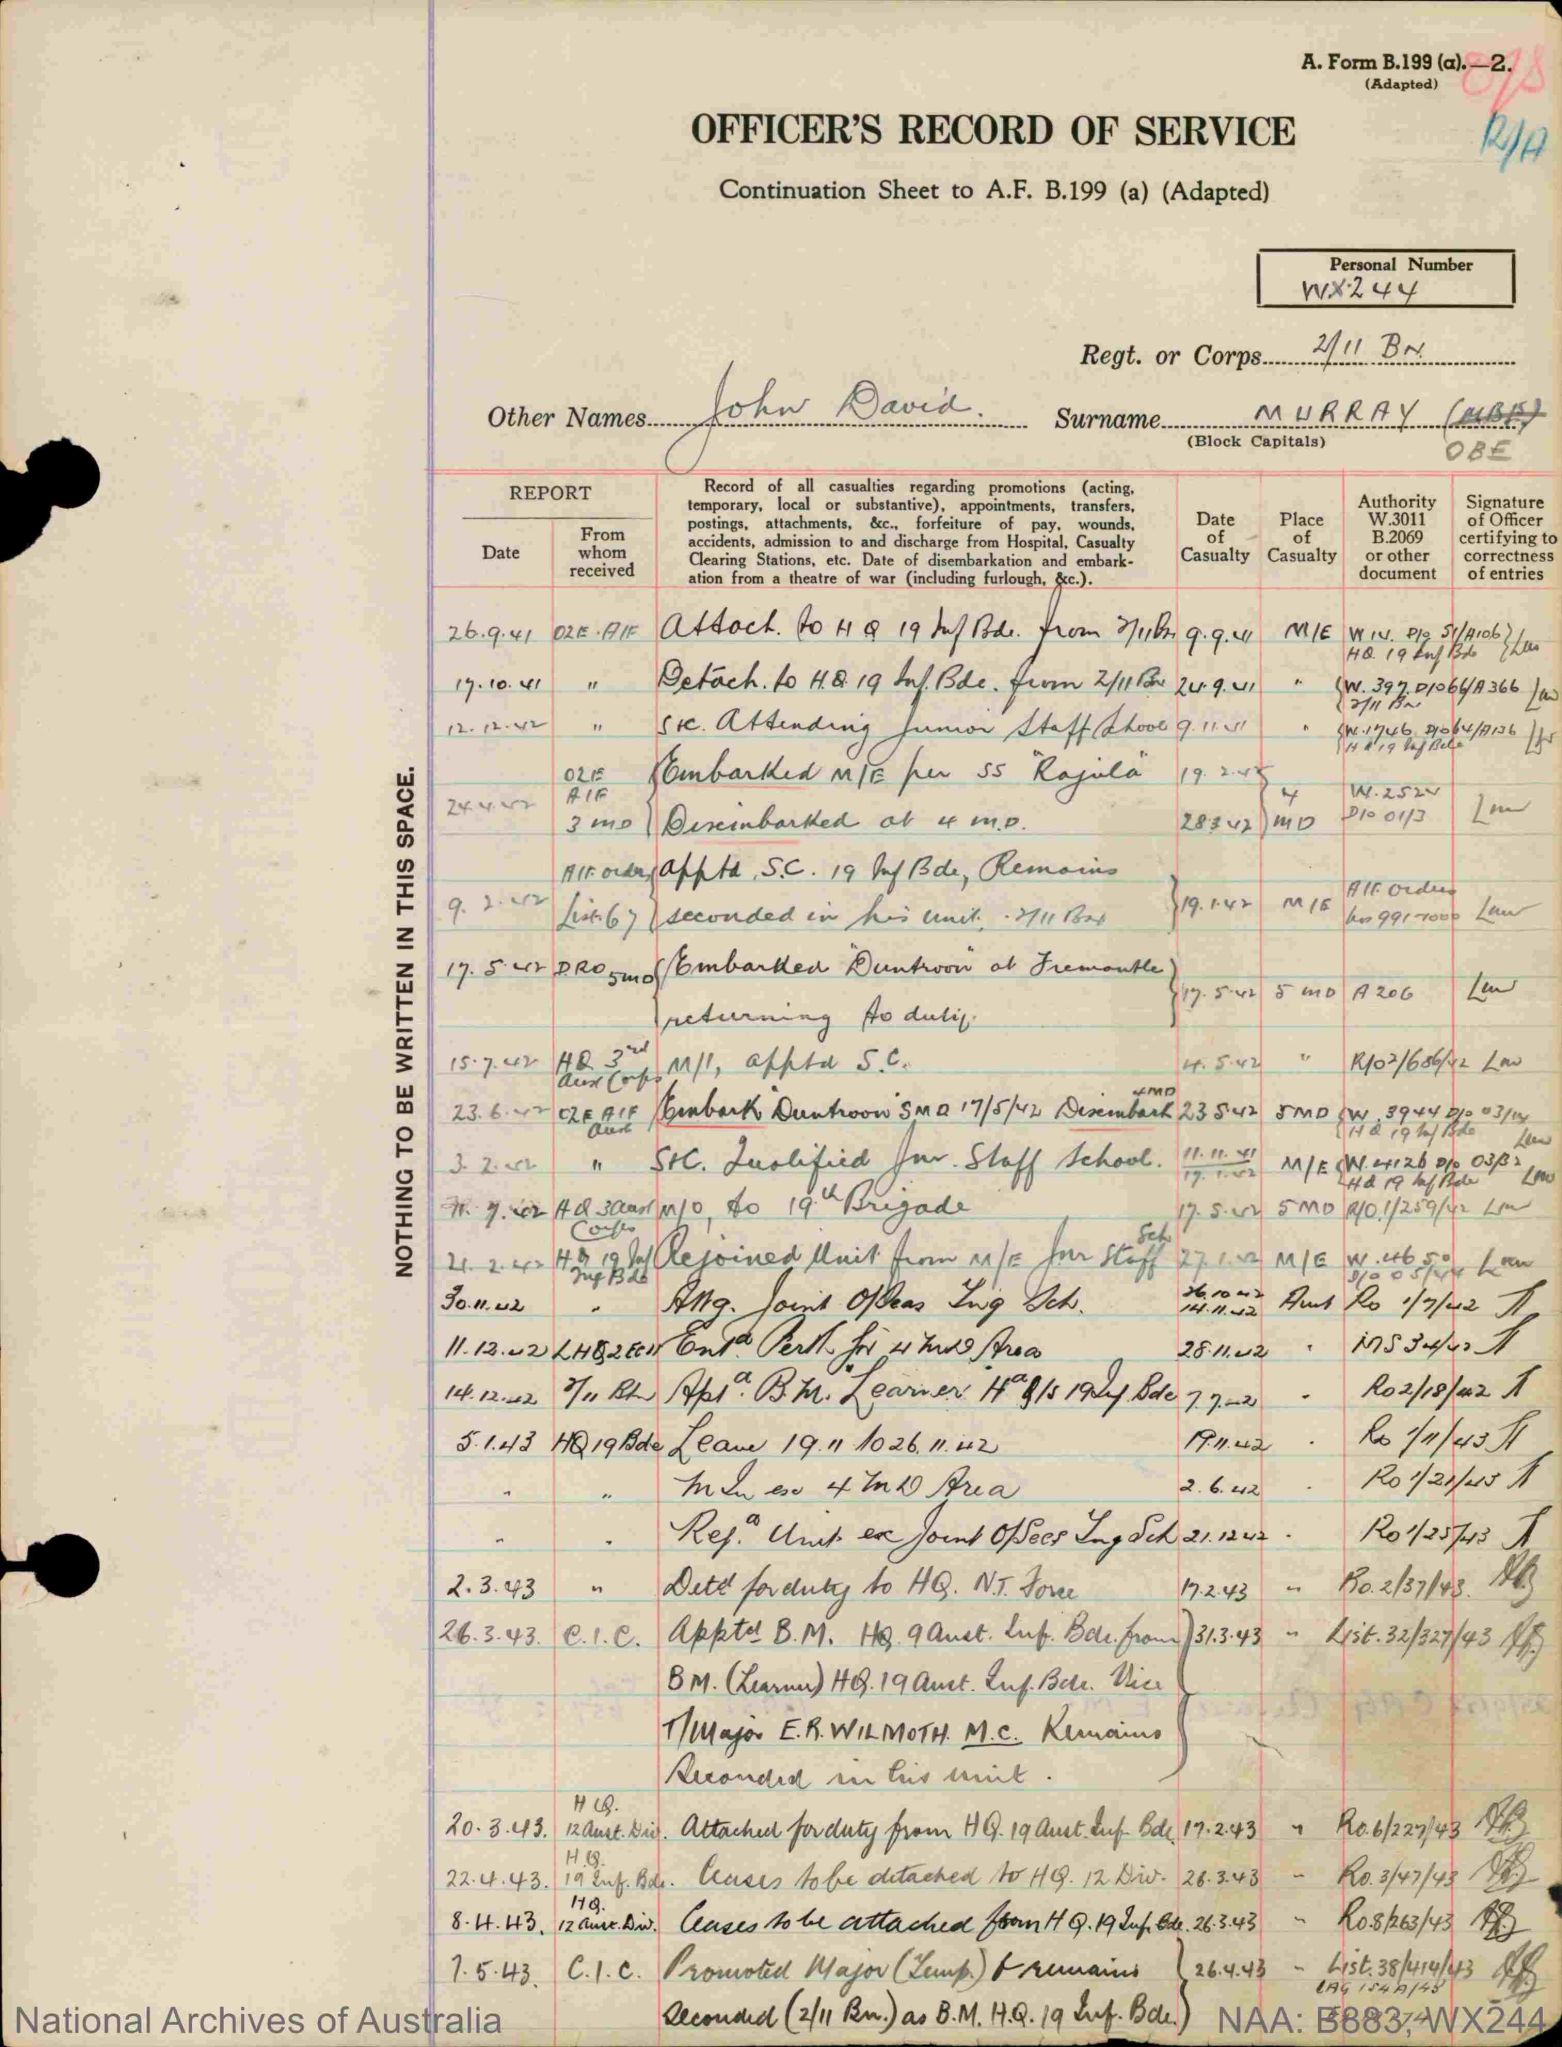 A. Form B.199 (a).—2.
(Adapted)
R/A
OFFICER'S RECORD OF SERVICE
Continuation Sheet to A.F. B.199 (a) (Adapted)
Personal Number
WX244
Regt. or Corps 2/11 Bn.
Other Names John David. Surname MURRAY (MBE)
(Block Capitals) OBE
REPORT
Date
From whom received
Record of all casualties regarding promotions (acting,
temporary, local or substantive), appointments, transfers,
postings, attachments, &c., forfeiture of pay, wounds,
accidents, admission to and discharge from Hospital, Casualty
Clearing Stations, etc. Date of disembarkation and embark-
ation from a theatre of war (including furlough, &c.).
Date of Casualty
Place of Casualty
Authority W.3011 B.2069 or other document
Signature of Officer certifying to correctness of entries
NOTHING TO BE WRITTEN IN THIS SPACE.
26.9.41 02E. AIF Attach. to H Q 19 Inf Bde. from 2/11 Bn 9.9.41 M/E
HQ. 19 Inf Bde
17.10.41 " Detach. to H.Q. 19 Inf. Bde. from 2/11 Bn 24.9.41 " W. 397 D/O 66/A366
2/11 Bn
12.12.42 " Attending Junior Staff School 9.11.41 " W.1746
H Q 19 Inf Bde
02E Embarked M/E per SS "Rajula" 19.2.42
24.4.42 AIF 3 MD Disembarked at 4 M.D. 28.3.42 4 MD W.2524
AIF orders Apptd. S.C. 19 Inf Bde, Remains
9.2.42 List 67 seconded in his unit, 2/11 Bn 19.1.42 M/E AIF Orders
Nos 991-1000 Law
17.5.42 DRO 5MD Embarked "Duntroon" at Fremantle
returning to duty. 17.5.42 5 MD A206 Law
15.7.42 HQ 3rd Aust Corps M/I, apptd S.C. 4.5.42 " R/O2/686/42 Law
23.6.42 02E AIF Aust Embark "Duntroon" 5MD 17/5/42 Disembark 4MD 23.5.42 5MD W.3944
H Q 19 Inf Bde Law
3.2.42 " Qualified Jnr. Staff School. 11.11.41 17.1.42 M/E W.4126 D/O 03/32
H Q 19 Inf Bde Law
7.42 H Q 3 Aust Corps M/O, to 19th Brigade 17.5.42 5MD R/O.1/259/42 Law
21.2.42 HQ 19 Inf Bde Rejoined Unit from M/E Jnr Staff Sch 27.1.42 M/E W.4650 Law
30.11.42 " Attg. Joint O/Seas Tng Sch. 26.10.42 14.11.42 Aust Ro 1/7/42
11.12.42 LHQ 2 Ech Entd Perth for 4 MD Area 28.11.42 "
14.12.42 2/11 Bn Aptd. B.M. "Learner" 19 Inf Bde 7.7.42 " Ro 2/18/42
5.1.43 HQ 19 Bde Leave 19.11 to 26.11.42 19.11.42 " Ro 1/11/43
" " M In ex 4 M D Area 2.6.42 " Ro 1/21/43
" " Rejd Unit ex Joint O/Seas Tng Sch 21.12.42 " Ro 1/25/43
2.3.43 " Detd for duty to HQ. N.T. Force 17.2.43 " Ro.2/37/43.
26.3.43. C.I.C. Apptd B.M. HQ. 9 Aust. Inf. Bde. from 31.3.43 " List.32/327/43
B M. (Learner) HQ. 19 Aust. Inf. Bde. Vice
T/Major E.R. WILMOTH. M.C. Remains
Seconded in his unit.
20.3.43. H Q. 12 Aust. Div. Attached for duty from H Q. 19 Aust. Inf. Bde. 17.2.43 " Ro.6/227/43
22.4.43. H.Q. 19 Inf. Bde. Ceases to be detached to HQ. 12 Div. 26.3.43 " Ro.3/47/43
8.4.43. HQ. 12 Aust. Div. Ceases to be attached from H Q. 19 Inf. Bde. 26.3.43 " Ro.8/263/43
7.5.43. C.I.C. Promoted Major (Temp.) & remains 26.4.43 " List.38/414/43
Seconded (2/11 Bn.) as B.M. H.Q. 19 Inf. Bde.
National Archives of Australia NAA: B883, WX244